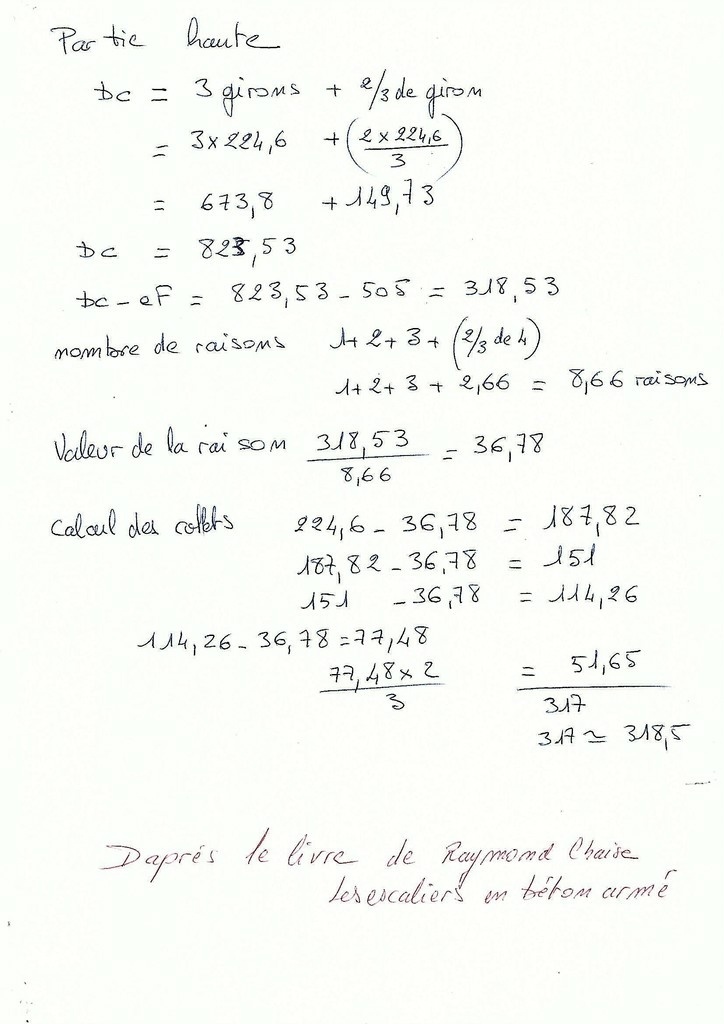 Partie haute
DC = 3 girons + 2/3 de giron
= 3×224,6 + (2 × 224,6 / 3)
= 673,8 + 149,73
DC = 823,53
DC - eF = 823,53 - 505 = 318,53
nombre de raisons 1+2+3+(2/3 de 4)
1+2+3+2,66 = 8,66 raisons
Valeur de la raison 318,53 / 8,66 = 36,78
Calcul des collets 224,6 - 36,78 = 187,82
187,82 - 36,78 = 151
151 - 36,78 = 114,26
114,26 - 36,78 = 77,48
77,48 × 2 / 3 = 51,65
317
317 ≃ 318,5
Daprés le livre de Raymond Chaise
les escaliers en béton armé